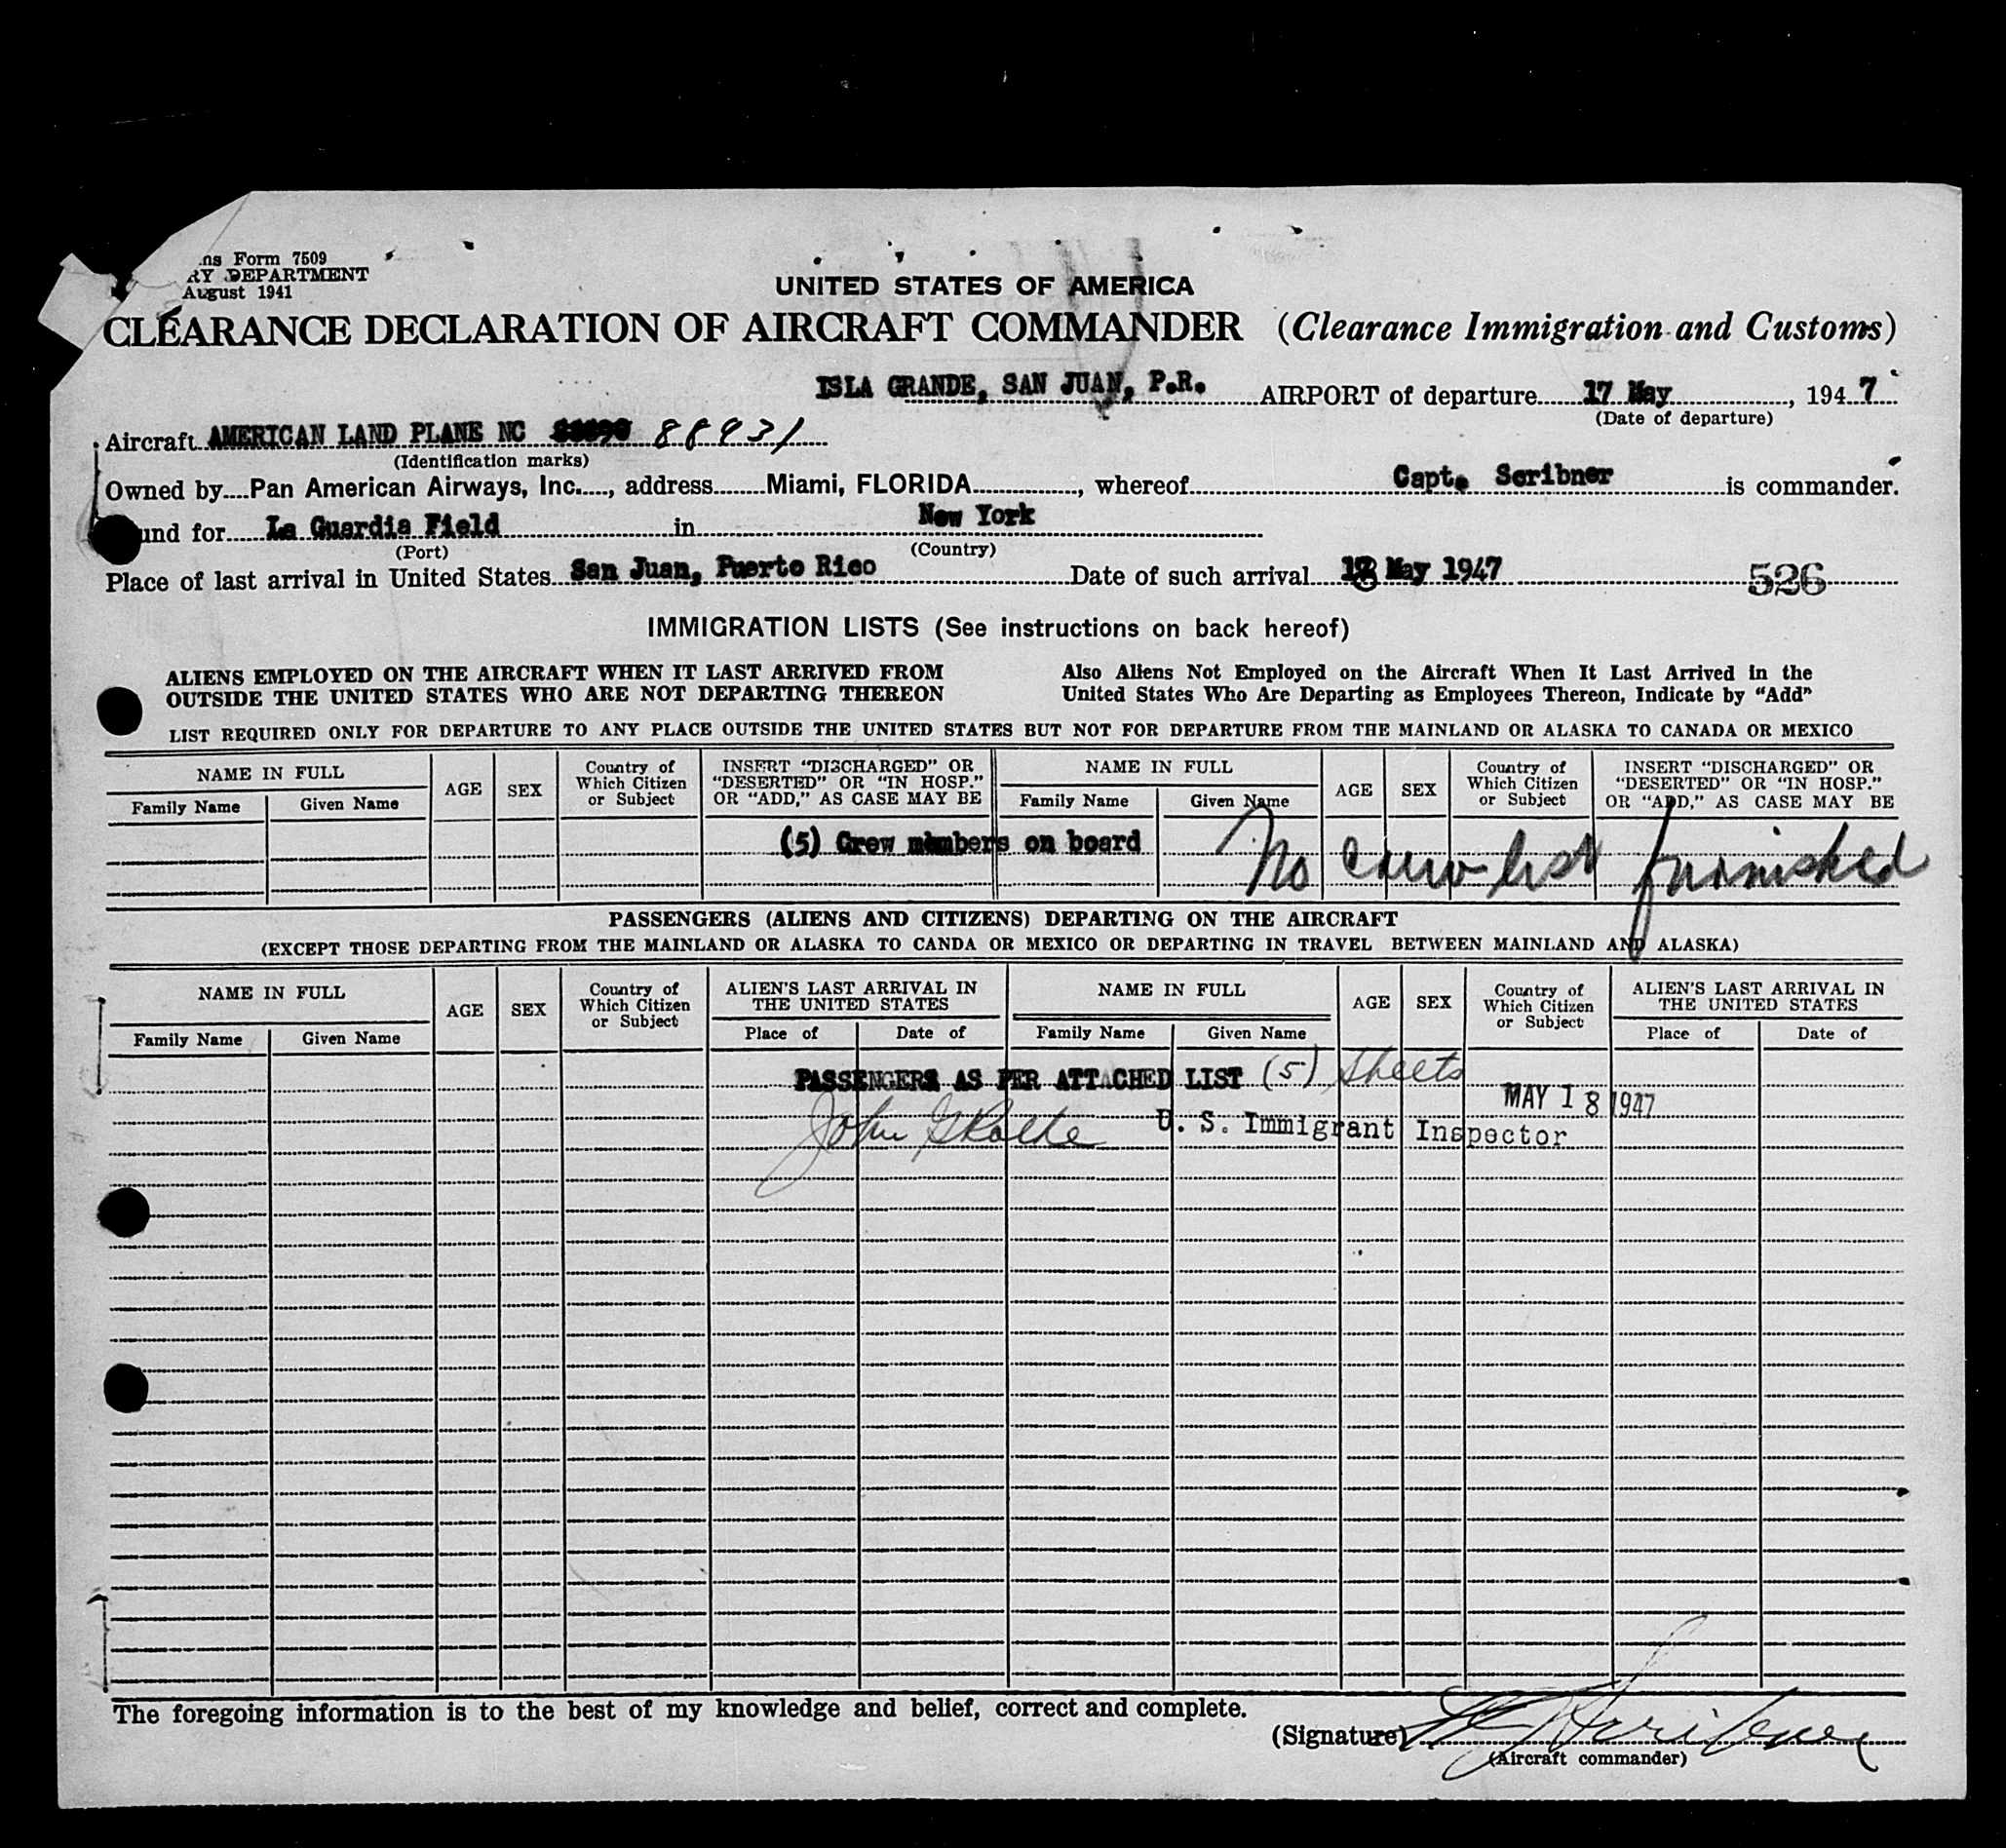 ns Form 7509
RY DEPARTMENT
August 1941
UNITED STATES OF AMERICA
CLEARANCE DECLARATION OF AIRCRAFT COMMANDER (Clearance Immigration and Customs)
ISLA GRANDE, SAN JUAN, P.R. AIRPORT of departure 17 May, 1947
(Date of departure)
Aircraft AMERICAN LAND PLANE NC 88931
(Identification marks)
Owned by Pan American Airways, Inc., address Miami, FLORIDA, whereof Capt. Scribner is commander.
und for La Guardia Field in New York
(Port) (Country)
Place of last arrival in United States San Juan, Puerto Rico Date of such arrival May 1947 526
IMMIGRATION LISTS (See instructions on back hereof)
ALIENS EMPLOYED ON THE AIRCRAFT WHEN IT LAST ARRIVED FROM
OUTSIDE THE UNITED STATES WHO ARE NOT DEPARTING THEREON
Also Aliens Not Employed on the Aircraft When It Last Arrived in the
United States Who Are Departing as Employees Thereon, Indicate by "Add"
LIST REQUIRED ONLY FOR DEPARTURE TO ANY PLACE OUTSIDE THE UNITED STATES BUT NOT FOR DEPARTURE FROM THE MAINLAND OR ALASKA TO CANADA OR MEXICO
NAME IN FULL
Family Name Given Name
AGE
SEX
Country of
Which Citizen
or Subject
INSERT "DISCHARGED" OR
"DESERTED" OR "IN HOSP."
OR "ADD," AS CASE MAY BE
NAME IN FULL
Family Name Given Name
AGE
SEX
Country of
Which Citizen
or Subject
INSERT "DISCHARGED" OR
"DESERTED" OR "IN HOSP."
OR "ADD," AS CASE MAY BE
(5) Crew members on board No crew list furnished
PASSENGERS (ALIENS AND CITIZENS) DEPARTING ON THE AIRCRAFT
(EXCEPT THOSE DEPARTING FROM THE MAINLAND OR ALASKA TO CANDA OR MEXICO OR DEPARTING IN TRAVEL BETWEEN MAINLAND AND ALASKA)
NAME IN FULL
Family Name Given Name
AGE
SEX
Country of
Which Citizen
or Subject
ALIEN'S LAST ARRIVAL IN
THE UNITED STATES
Place of Date of
NAME IN FULL
Family Name Given Name
AGE
SEX
Country of
Which Citizen
or Subject
ALIEN'S LAST ARRIVAL IN
THE UNITED STATES
Place of Date of
PASSENGERS AS PER ATTACHED LIST (5) sheets
MAY 18 1947
John U. S. Immigrant Inspector
The foregoing information is to the best of my knowledge and belief, correct and complete.
(Signature) Scribner
(Aircraft commander)